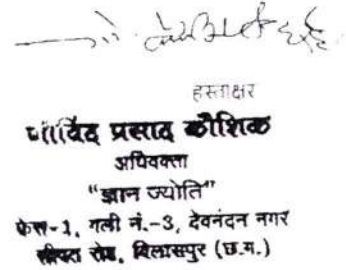 हस्ताक्षर
गोविंद प्रसाद कौशिक
अधिवक्ता
"ज्ञान ज्योति"
फेस-1, गली नं.-3, देवनंदन नगर
सीपत रोड, बिलासपुर (छ.ग.)